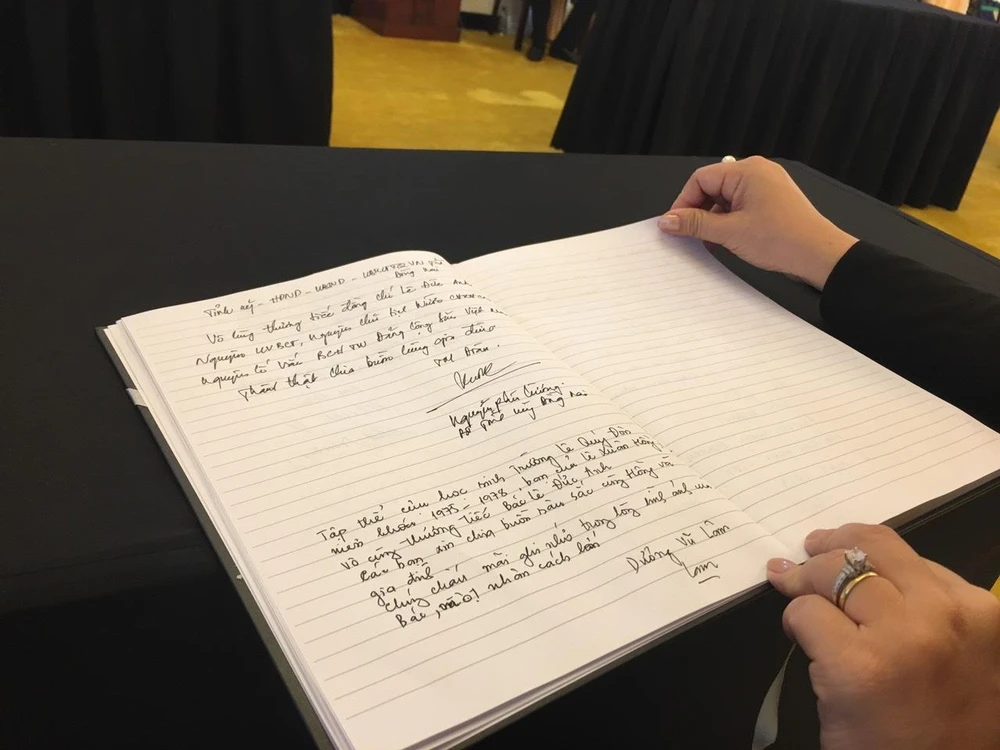 Tỉnh uỷ - HĐND - UBND - UBMTTQVN tỉnh
Đồng Nai
Vô cùng thương tiếc đồng chí Lê Đức Anh
Nguyên UVBCT, Nguyên chủ tịch Nước CHXHCN
nguyên cố vấn BCHTW Đảng Cộng Sản Việt Nam
Thành thật chia buồn cùng gia đình
TM Đoàn.
Nguyễn Phú Cường.
Tập thể cựu học sinh Trường Lê Quý Đôn
niên khóa: 1975 - 1978, bạn của Lê Xuân Hồng
vô cùng thương tiếc Bác Lê Đức Anh
Các bạn xin chia buồn sâu sắc cùng Hồng và
gia đình
Chúng cháu mãi ghi nhớ trong lòng hình ảnh của
Bác, nhân cách lớn
Dương Vũ Lâm